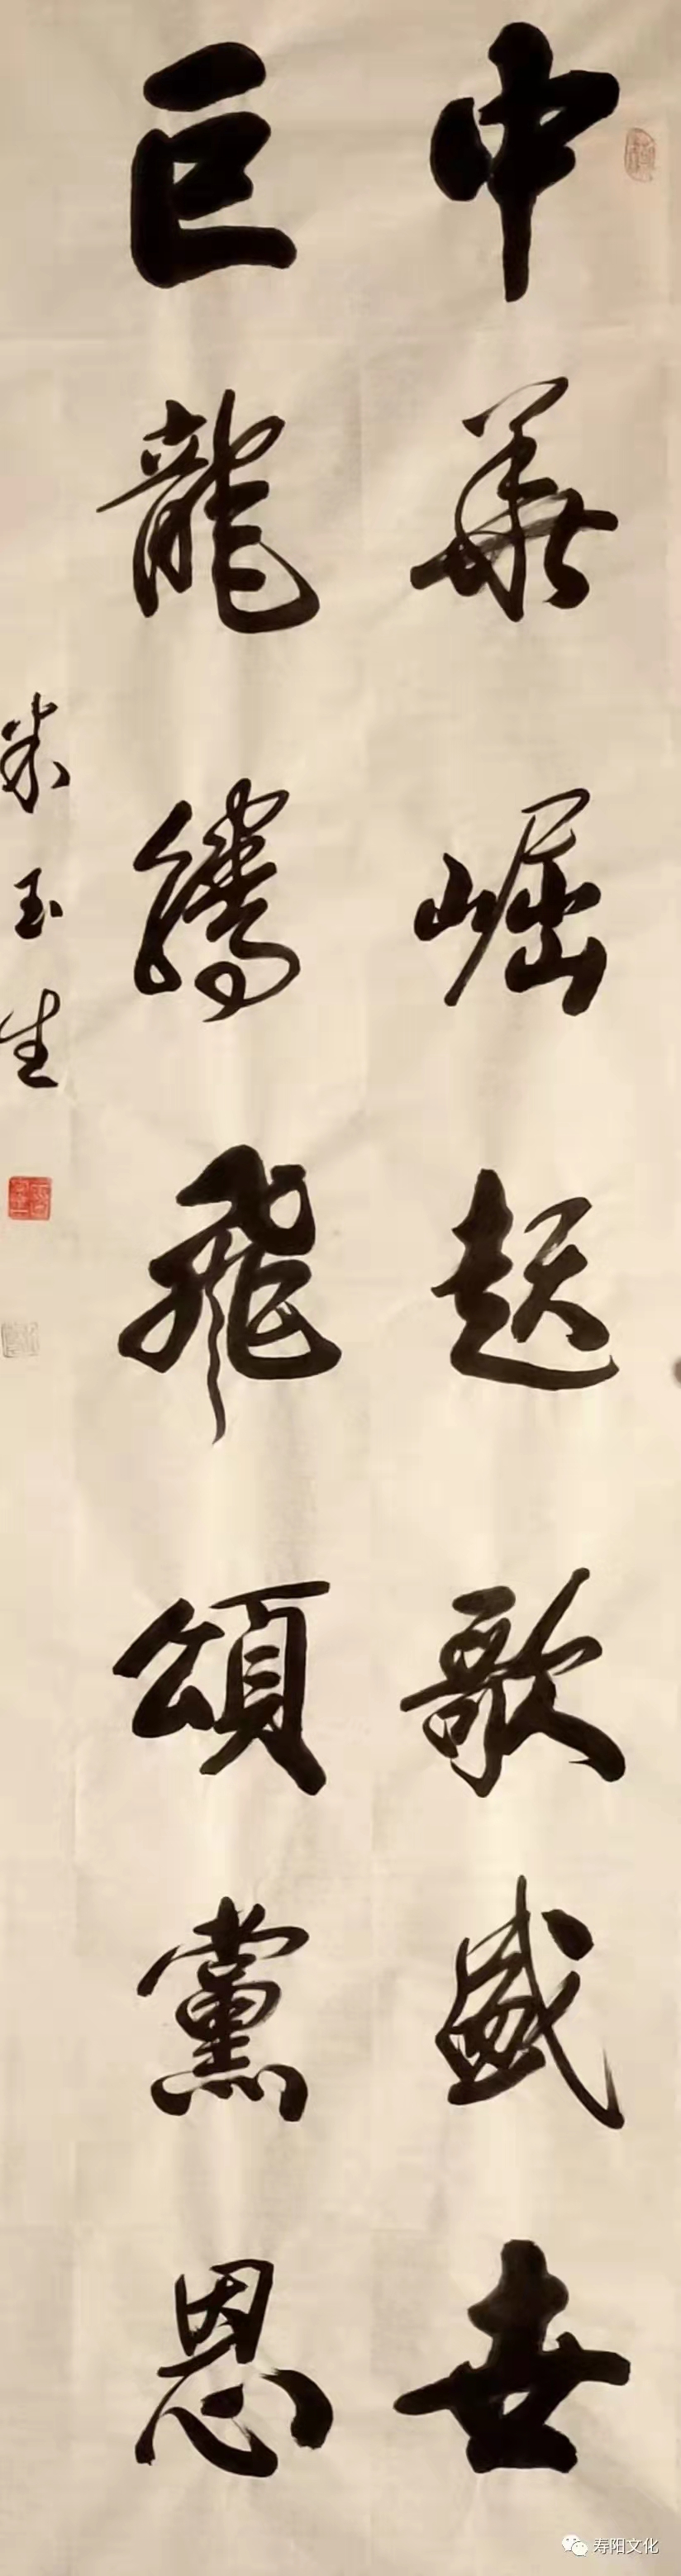 中華崛起歌盛世
巨龍騰飛頌黨恩
朱玉生
寿阳文化